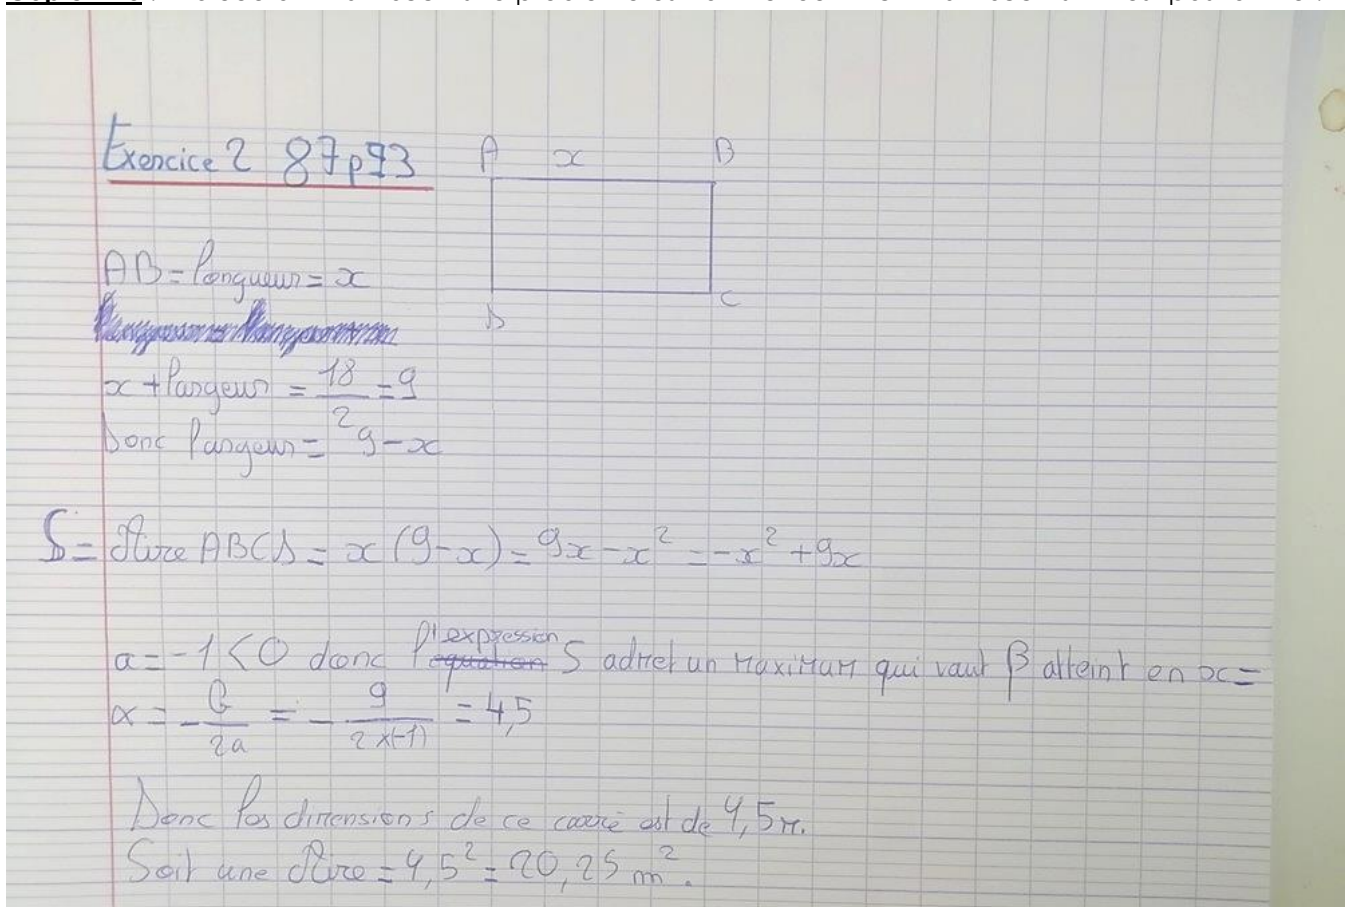 Exercice 2 87p93
A x B
D C
AB = longueur = x
x + largeur = 18/2 = 9
Donc largeur = 9 - x
S = Aire ABCD = x (9-x) = 9x - x² = -x² + 9x
a = -1 < 0 donc l'expression S admet un maximum qui vaut β atteint en x =
α = - b/2a = - 9/2×(-1) = 4,5
Donc les dimensions de ce carré est de 4,5 m.
Soit une Aire = 4,5² = 20,25 m².